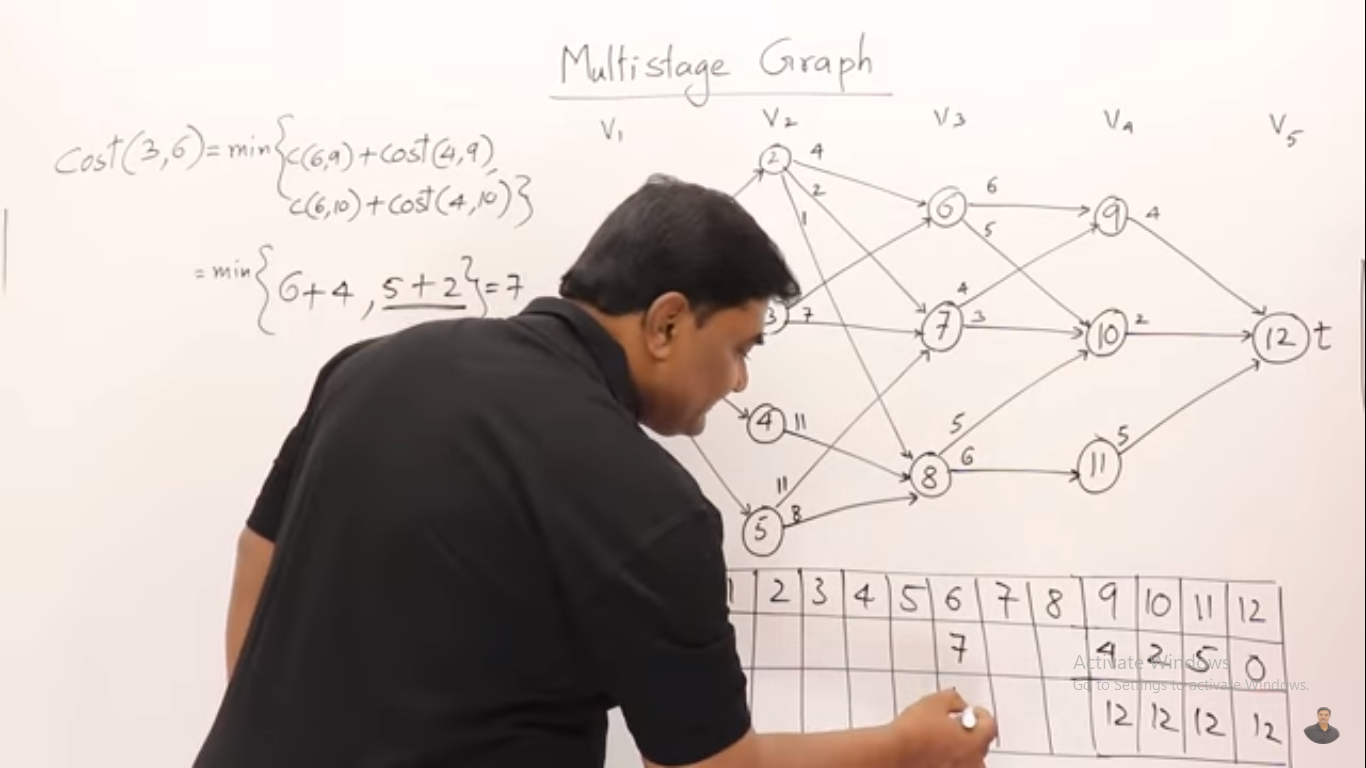 Multistage Graph
V1 V2 V3 V4 V5
Cost(3,6)=min{c(6,9)+cost(4,9),
c(6,10)+cost(4,10)}
=min{6+4,5+2}=7
2 4 2 1
6 6 5
9 4
3 7
7 4 3
10 2
12 t
4 11
8 5 6
11 5
5 11 8
1 2 3 4 5 6 7 8 9 10 11 12
7 4 2 5 0
12 12 12 12
Activate Windows
Go to Settings to activate Windows.